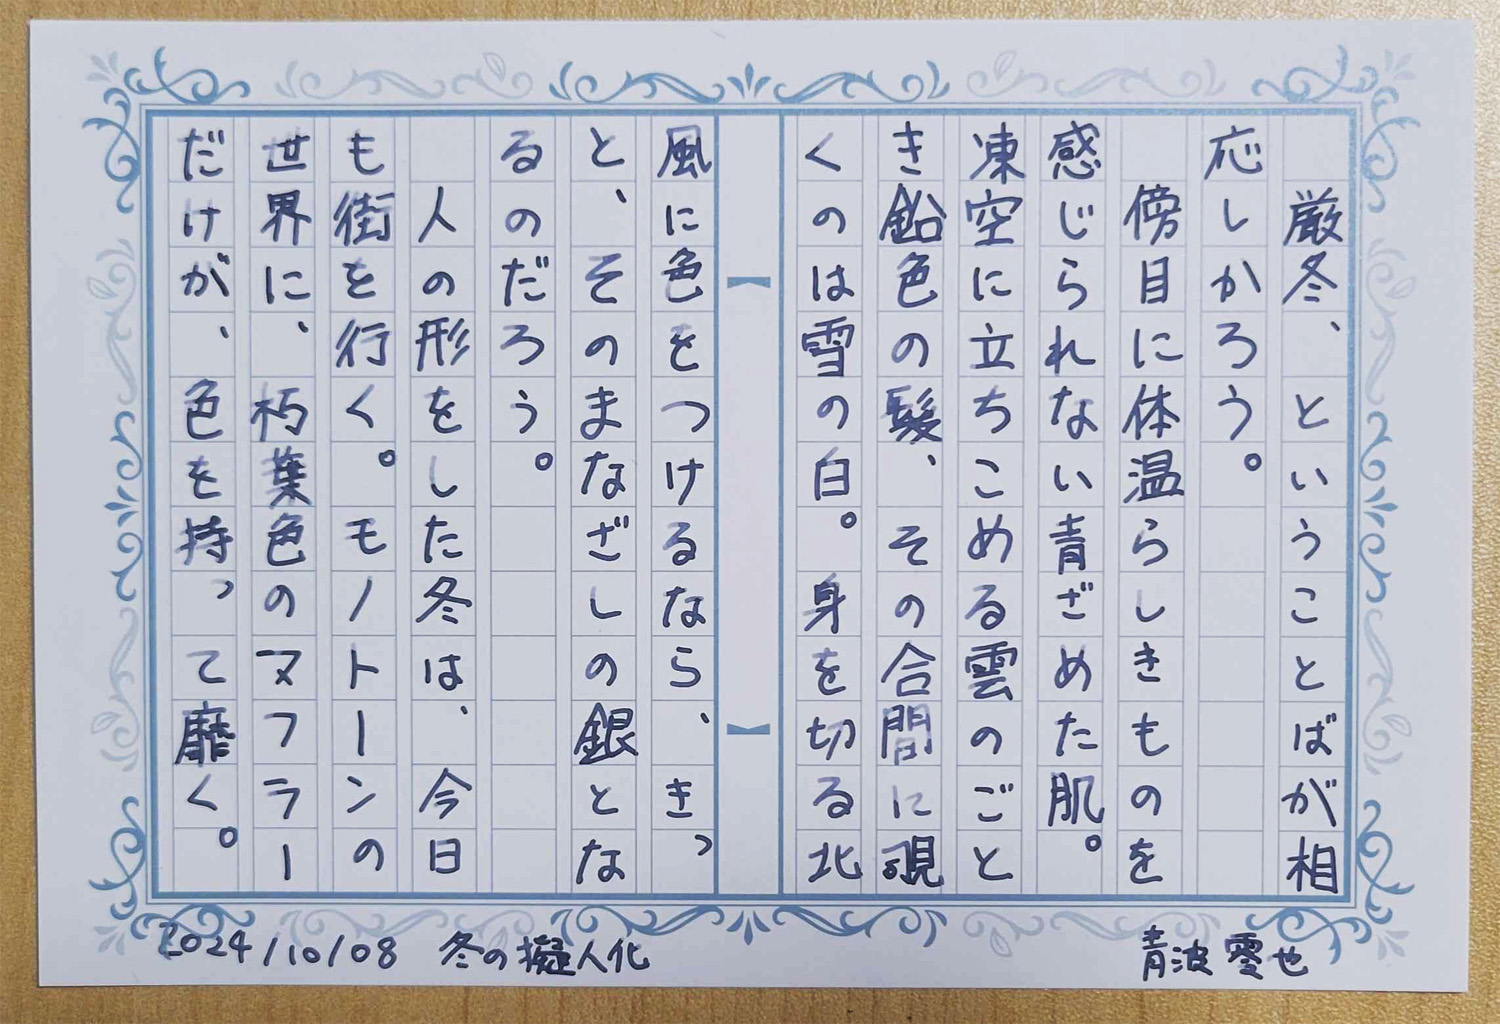 厳冬、ということばが相
応しかろう。
傍目に体温らしきものを
感じられない青ざめた肌。
凍空に立ちこめる雲のごと
き鉛色の髪、その合間に覗
くのは雪の白。身を切る北
風に色をつけるなら、きっ
と、そのまなざしの銀とな
るのだろう。
人の形をした冬は、今日
も街を行く。モノトーンの
世界に、朽葉色のマフラー
だけが、色を持って靡く。
2024/10/08 冬の擬人化
青波零也